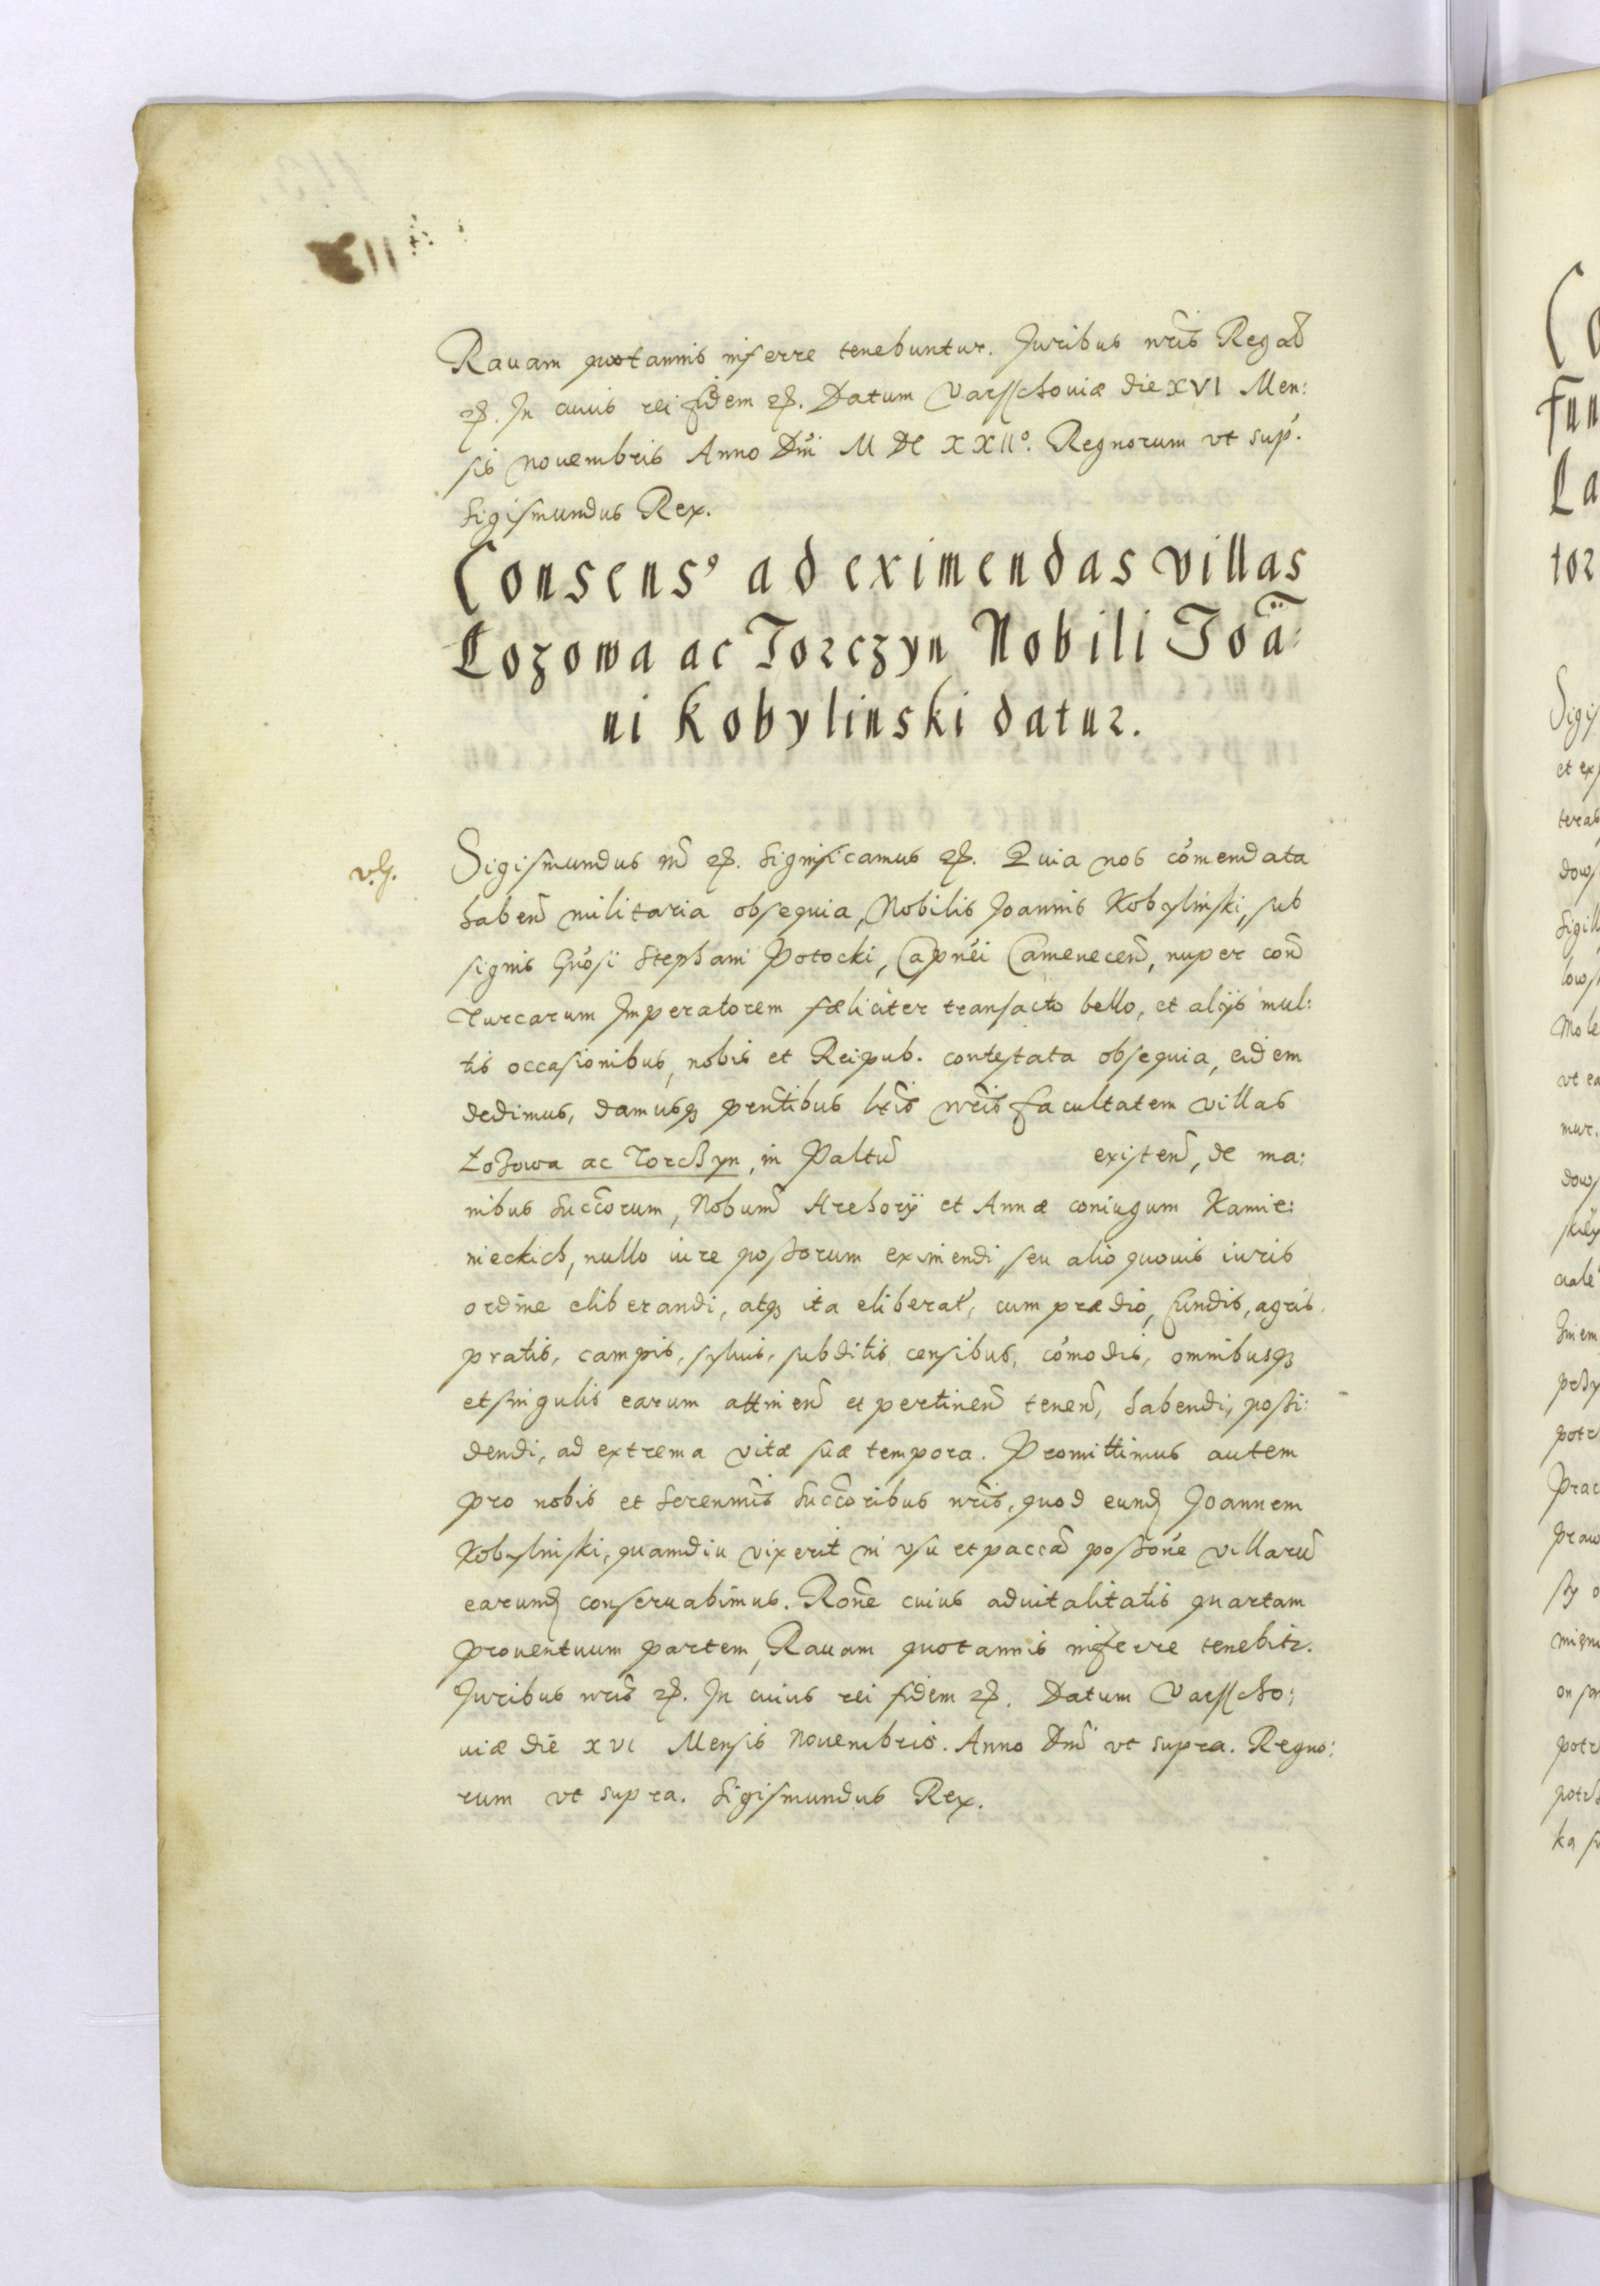 Rauam quotannis inferre tenebuntur. Juribus nr̃is Regal̃
etc. In cuius rei fidem etc. Datum Varsschouiæ die XVI Men:
sis Nouembris Anno Dñi M DC XXIIº. Regnorum vt sup̃.
Sigismundus Rex.
Consens⁹ ad eximendas villas
Łozowa ac Torczyn Nobili Joã:
ni Kobylinski datur.
Sigismundus III etc. Significamus etc. Quia nos cõmendata
habeñ militaria obsequia, Nobilis Joannis Kobylinski, sub
signis Gñosi Stephani Potocki, Capnei Cameneceñ, nuper con̄
Turcarum Imperatorem fæliciter transacto bello, et alijs mul:
tis occasionibus, nobis et Reipub. contestata obsequia, eidem
dedimus, damusq₃ pñtibus lr̃is nr̃is facultatem villas
Łozowa ac Torczyn, in Paltũ existeñ, de ma:
nibus Succõrum, Nobum̃ Hrehory et Annæ coniugum Kamie:
nieckich, nullo iure possorum eximendi, seu alio quouis iuris
ordine eliberandi, atq₃ ita eliberat̃, cum prædio, fundis, agris,
pratis, campis, syluis, subditis, censibus, cõmodis, omnibusq₃
et singulis earum attineñ et pertineñ teneñ, habendi, possi:
dendi, ad extrema vitæ suæ tempora. Promittimus autem
pro nobis et Serenmis̃ Succõribus nr̃is, quod eund̃ Joannem
Kobylinski, quamdiu vixerit in vsu et paccã possõne villarũ
earund̃ conseruabimus. Rõne cuius aduitalitatis quartam
prouentuum partem, Rauam quotannis inferre tenebitr.
Juribus nr̃is etc. In cuius rei fidem etc. Datum Varsscho:
uiæ die XVI Mensis Nouembris. Anno Dñi vt supra. Regno:
rum vt supra. Sigismundus Rex.